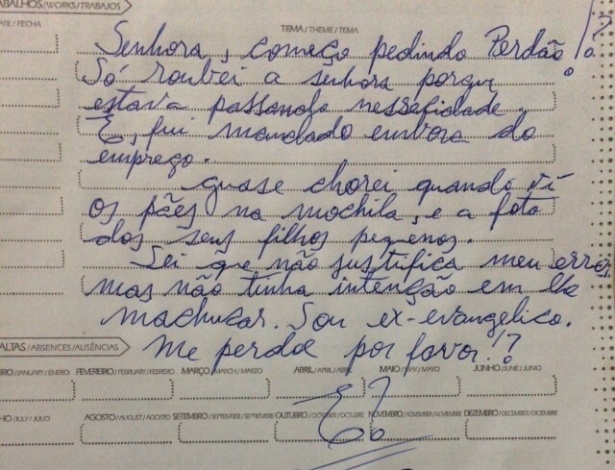 ABALHOS/WORKS/TRABAJOS
ATE/FECHA
TEMA/THEME/TEMA
Senhora, começo pedindo Perdão!
Só roubei a senhora porque
estava passando nessecidade.
E, fui mandado embora do
emprego.
quase chorei quando vi
os pães na mochila, e a foto
dos seus filhos pequenos.
Sei que não justifica meu erro
mas não tinha intenção em lhe
machucar. Sou ex-evangelico.
Me perdoe por favor!?
ALTAS/ABSENCES/AUSÊNCIAS
RO/JANUARY/ENERO FEVEREIRO/FEBRUARY/FEBRERO MARÇO/MARCH/MARZO ABRIL/APRIL/ABRIL MAIO/MAY/MAYO JUNHO/JUNE/JUNIO
HO/JULY/JULIO AGOSTO/AUGUST/AGOSTO SETEMBRO/SEPTEMBER/SEPTIEMBRE OUTUBRO/OCTOBER/OCTUBRE NOVEMBRO/NOVEMBER/NOVIEMBRE DEZEMBRO/DECEMBER/DICIEMBRE